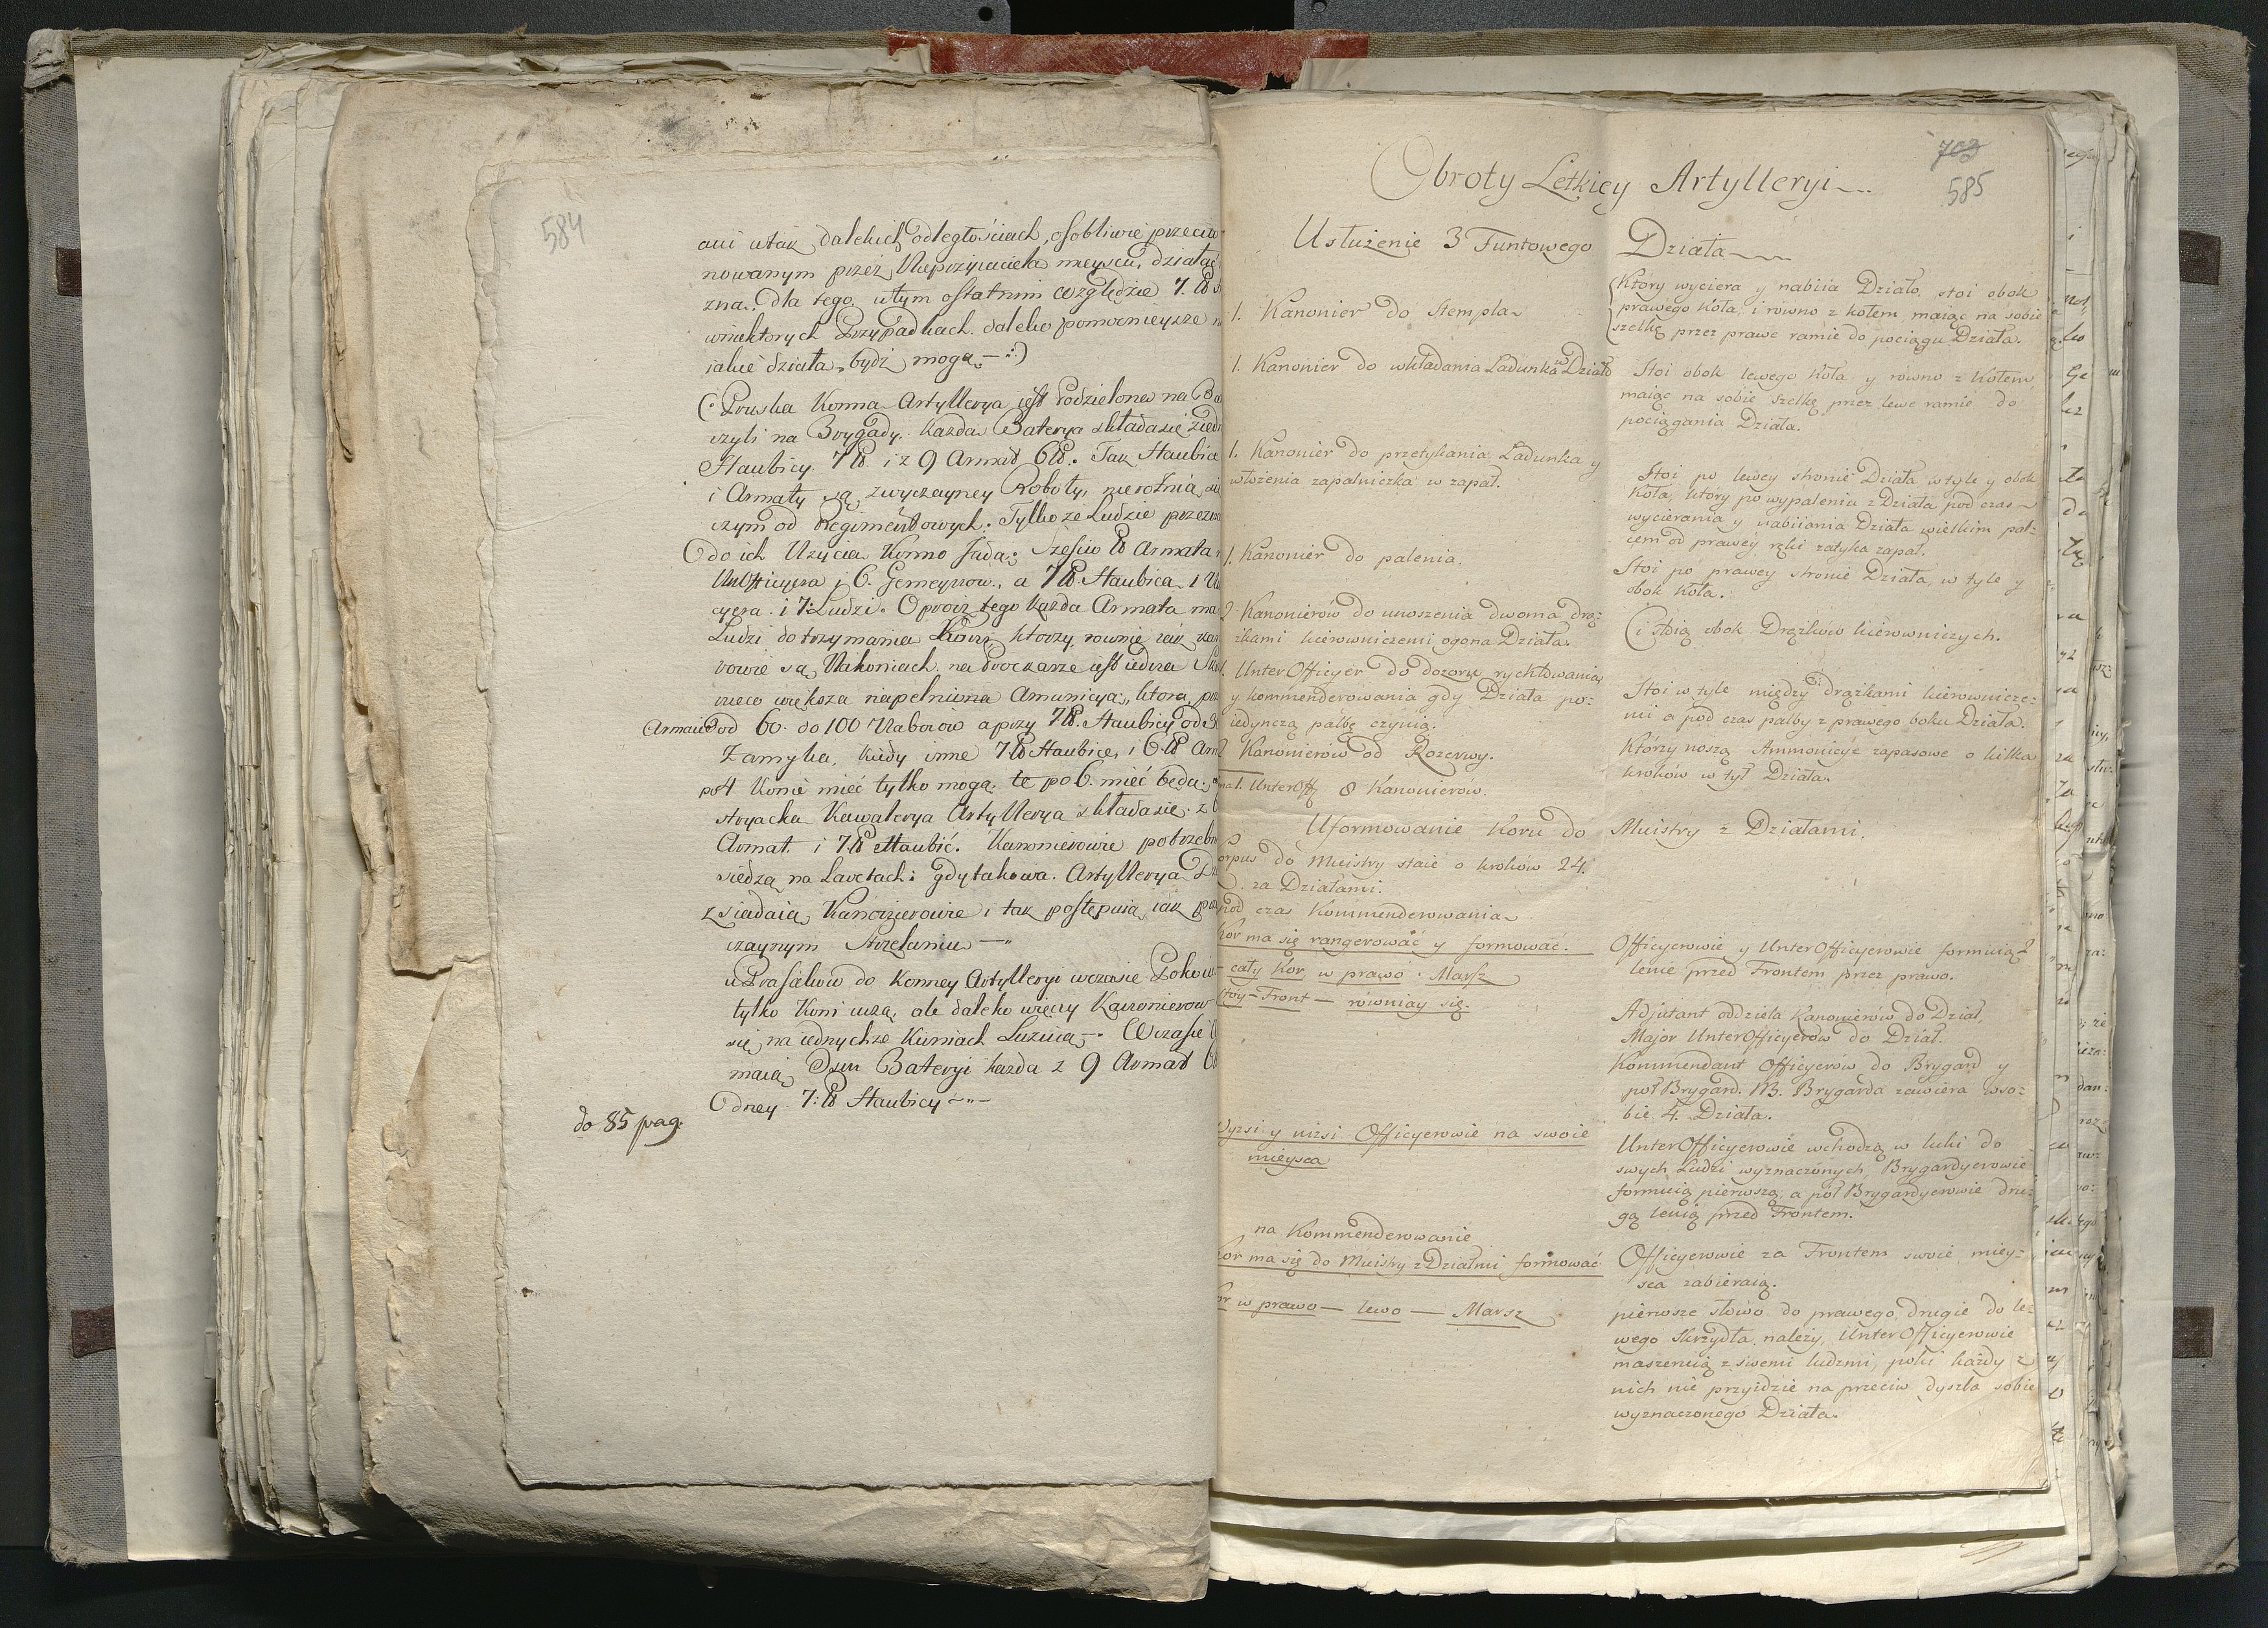 584
ani w tak dalekich odległościach, osobliwie przeciw
nowanym przez Nieprzyiaciela mieyscu, działać
zna. dla tego w tym ostatnim względzie 7. ℔
w niektorych Przypadkach daleko pomocnieysze
iakie działa, bydź mogą —:)
(: Pruska Konna Artyllerya iest Podzielona na
czyli na Brygady. każda Baterya składa się
Haubicy 7 ℔ i z 9 Armat 6 ℔. Tak Haubice
i Armaty są zwyczayney Roboty, nierożnią
czym od Regimentowych. Tylko ze Ludzie
do ich Użycia Konno Jadą; Sześciu ℔ Armata
UnOfficyera i 6. Gemeynow, a 7 ℔. Haubica 1
cyera i 7. Ludzi. Oprocz tego każda Armata
Ludzi do trzymania Koni, ktorzy rownie iak
rowie są Nakoniach, na Prockarze iest iedna
nieco większa napełniona Amunicya, ktora
Armat od 60. do 100 Naboiow a przy 7 ℔. Haubicy od
Zamyka, kiedy inne 7 ℔ Haubice, i 6 ℔
po 4 Konie mieć tylko mogą. te po 6. mieć będą;
stryacka Kawalerya Artyllerya składa się z
Armat i 7 ℔ Haubic. Kanonierowie
siedzą na Lavetach: gdy takowa Artyllerya
zsiadaią Kanonierowie i tak postępuią iak
czaynym Strzelaniu —"
u Prusakow do Konney Artylleryi w czasie
tylko Koni uczą, ale daleko więcy Kanonierow
się na iednychze Koniach Luzuią —. W czasie
maią Osm Bateryi każda z 9 Armat
Odney 7: ℔ Haubicy —"—
do 85 pag.
703
585
Obroty Letkiey Artylleryi —..
Usłużenie 3 Funtowego Działa —
1. Kanonier do Stempla
Który wyciera y nabiia Działo, stoi obok
prawego Koła, i równo z kołem, maiąc na sobie
szelkę przez prawe ramie do pociągu Działa.
1. Kanonier do wkładania Ladunka w Działo
Stoi obok lewego Koła y równo z Kołem,
maiąc na sobie Szelkę przez lewe ramie do
pociągania Działa.
1. Kanonier do przetykania Ladunka y
włożenia zapalniczka w zapał.
Stoi po lewey stronie Działa w tyle y obok
Koła, który po wypaleniu z Działa pod czas
wycierania y nabiiania Działa wielkim pal:
cem od prawey ręki zatyka zapał.
1. Kanonier do palenia.
Stoi po prawey stronie Działa, w tyle y
obok Koła.
2 Kanonierów do unoszenia dwoma drą:
żkami kierowniczemi ogona Działa.
Ci stoią obok Drążków kierowniczych.
1. UnterOfficyer do dozoru rychtowania
y kommenderowania gdy Działa po:
iedynczą palbę czynią.
Stoi w tyle między drążkami kierownicze:
mi a pod czas palby z prawego boku Działa.
2 Kanonierów od Rezerwy.
Którzy noszą Ammonicye zapasowe o kilka
kroków w tył Działa.
1. UnterOff 8 Kanonierów.
Uformowanie Koru do Musztry z Działami.
orpus do Musztry staie o kroków 24.
za Działami.
pod czas Kommenderowania
Kor ma się rangerować y formować.
Officyerowie y UnterOfficyerowie formuią
lenie przed Frontem przez prawo.
cały Kor w prawo. Marsz
Stoy — Front — równiay się.
Adjutant oddziela Kanonierów do Dział,
Major UnterOfficyerów do Dział.
Kommendant Officyerów do Brygard y
poł Brygard. NB. Brygarda zawiera w so:
bie 4. Działa.
Wyżsi y niżsi Officyerowie na swoie
mieysca
UnterOfficyerowie wchodzą w luki do
swych Ludzi wyznaczonych, Brygardyerowie
formuią pierwszą, a pół Brygardyerowie dru:
gą lenią przed Frontem.
na Kommenderowanie
Kor ma się do Musztry z Działmi formować
Officyerowie za Frontem swoie miey:
sca zabieraią.
or w prawo — lewo — Marsz
pierwsze słowo do prawego, drugie do le:
wego Skrzydła należy, UnterOfficyerowie
maszeruią z swemi ludzmi, poki każdy z
nich nie przyidzie na przeciw dyszla sobie
wyznaczonego Działa.